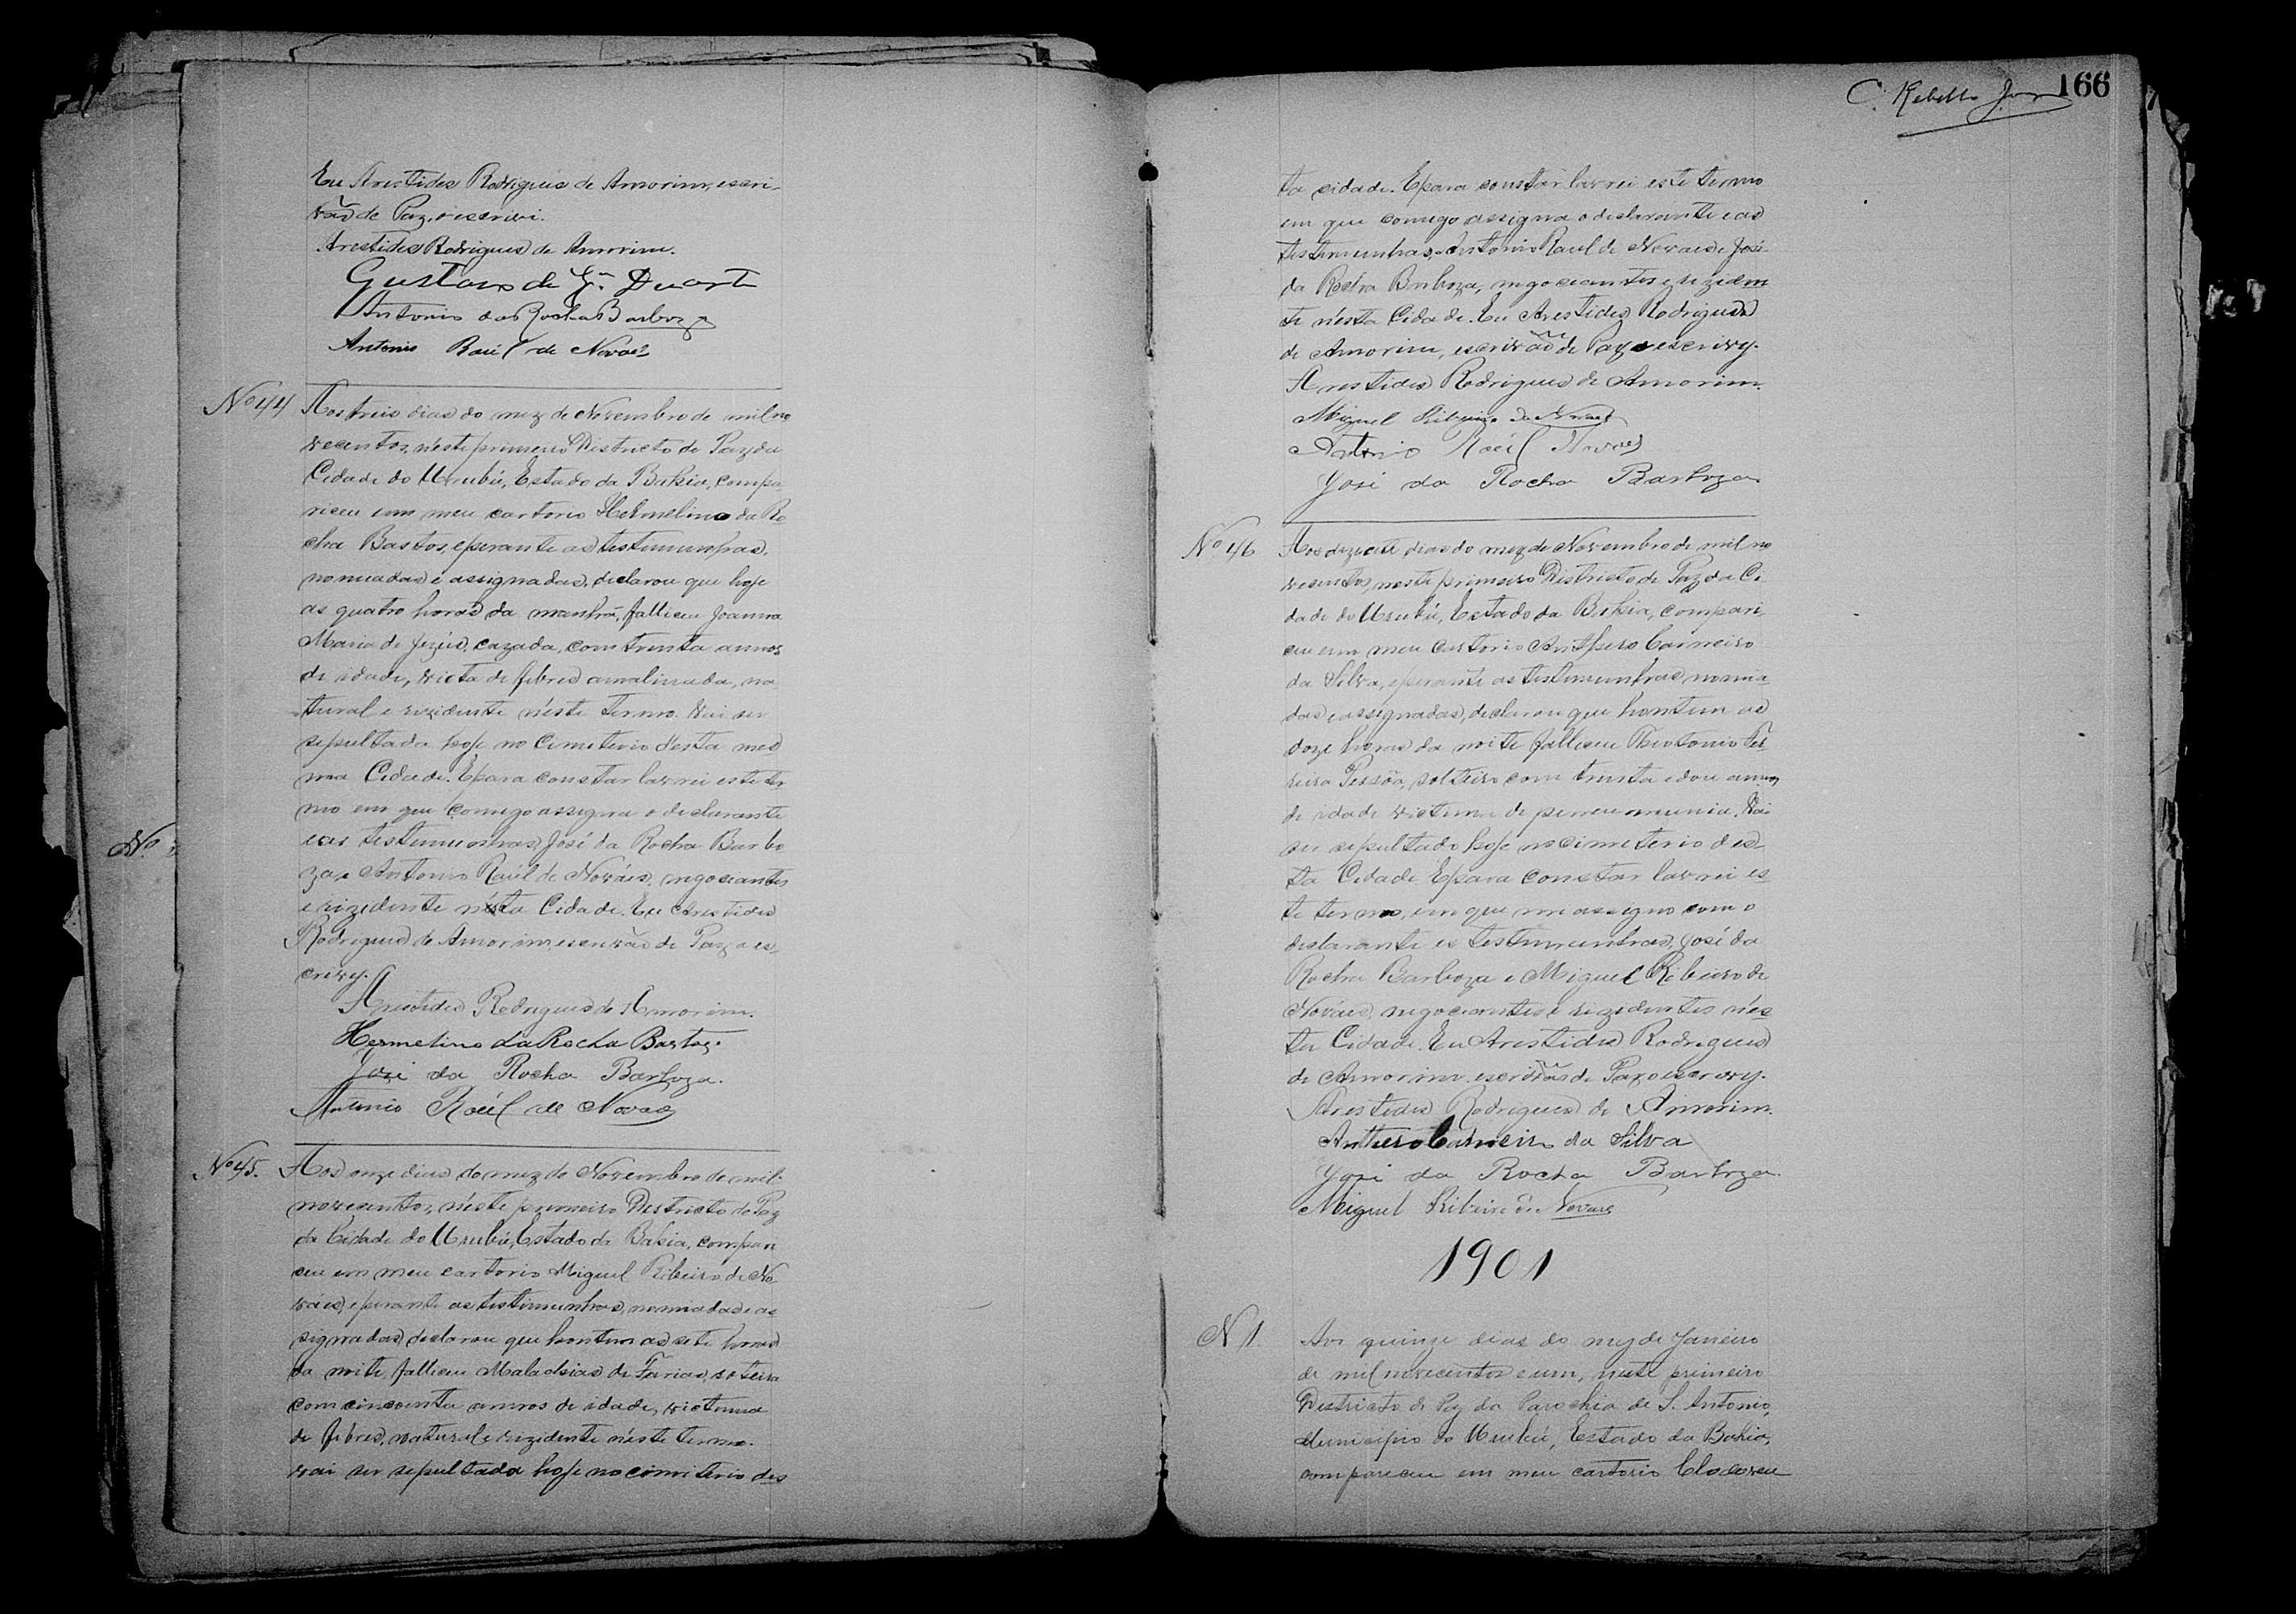 Eu Aristides Rodrigues de Amorim, escri-
vão de Paz, o escrevi.
Aristides Rodrigues de Amorim.
Gustavo de Duarte
Antonio da Rocha Barboza
Antonio Raúl de Novaes
Nº 44 Aos treis dias do mez de Novembro de mil no
vecentos, néste primeiro Districto de Paz da
Cidade do Urubú, Estado da Bahia, compa-
receu em meu cartorio Hermelino da Ro
cha Bastos, e perante as testemunhas,
nomiadas e assignadas, declarou que hoje
as quatro horas da manhã, falleceu Joanna
Maria de Jezús, cazada, com trinta annos
de idade, victa de febres, na
tural e rezidente néste termo. Vai ser
sepultada hoje no Cimeterio desta mes
ma Cidade. E para constar lavrei este ter
mo em que comigo assigna o declarante
e as testemunhas, José da Rocha Barbo
za, e Antonio Raúl de Nováes, negociantes
e rezidente nésta Cidade. Eu Aristides
Rodrigues de Amorim, escrivão de Paz o es-
crevy.
Aristides Rodrigues de Amorim.
Hermelino da Rocha Bastos.
José da Rocha Barboza.
Antonio Raúl de Novaes
Nº 45. Aos onze dias do mez de Novembro de mil
novecentos, néste primeiro Districto de Paz
da Cidade do Urubú, Estado da Bahia, compare
ceu em meu cartorio Miguel Ribeiro de No
váes, e perante as testemunhas, nomiadas e as
signadas, declarou que hontem as sete horas
da noite, falleceu Malachias de Farias, solteira
com cincoenta annos de idade, victima
de fébres, natural e rezidente néste termo.
vai ser sepultada hoje no cimiterio des
C. Rebello Jor 166
ta cidade. E para constar lavrei este termo
em que comigo assigna o declarante e as
testemunhas, Antonio Raul de Novaes e José
da Rocha Barboza, negociantes e rezidem
te nésta Cidade. Eu Aristides Rodrigues
de Amorim, escrivão de Paz o escrevy.
Aristides Rodrigues de Amorim.
Miguel Ribeiro de Novaes
Antonio Raúl Novaes
José da Rocha Barboza
Nº 46 Aos dezecete dias do mez de Novembro de mil no
vecentos, neste primeiro Districto de Paz da Ci
dade do Urubú, Estado da Bahia, compari
ceu em meu cartorio Anthero Carneiro
da Silva, e perante as testemunhas nomia
das e assignadas, declarou que hontem as
doze horas da noite falleceu Theotonio Fer
reira Pessôa, solteiro com trinta e dous annos
de idade victima de pneumunia. Vai
ser sepultado hoje no cimeterio des-
ta Cidade. E para constar lavrei es
te termo, em que me assigno com o
declarante e as testemunhas, José da
Rocha Barboza e Miguel Ribeiro de
Nováes, negociantes e rezidentes nés
ta Cidade. Eu Aristides Rodrigues
de Amorim escrivão de Paz o escrevy.
Aristides Rodrigues de Amorim.
Anthero Carneiro da Silva
José da Rocha Barboza.
Miguel Ribeiro de Novaes
1901
N 1. Aos quinze dias do mez de Janeiro
de mil novecentos e um, neste primeiro
Districto de Paz da Parochia de S. Antonio,
Municipio do Urubú, Estado da Bahia,
compareceu em meu cartorio Clodoveu
Nº